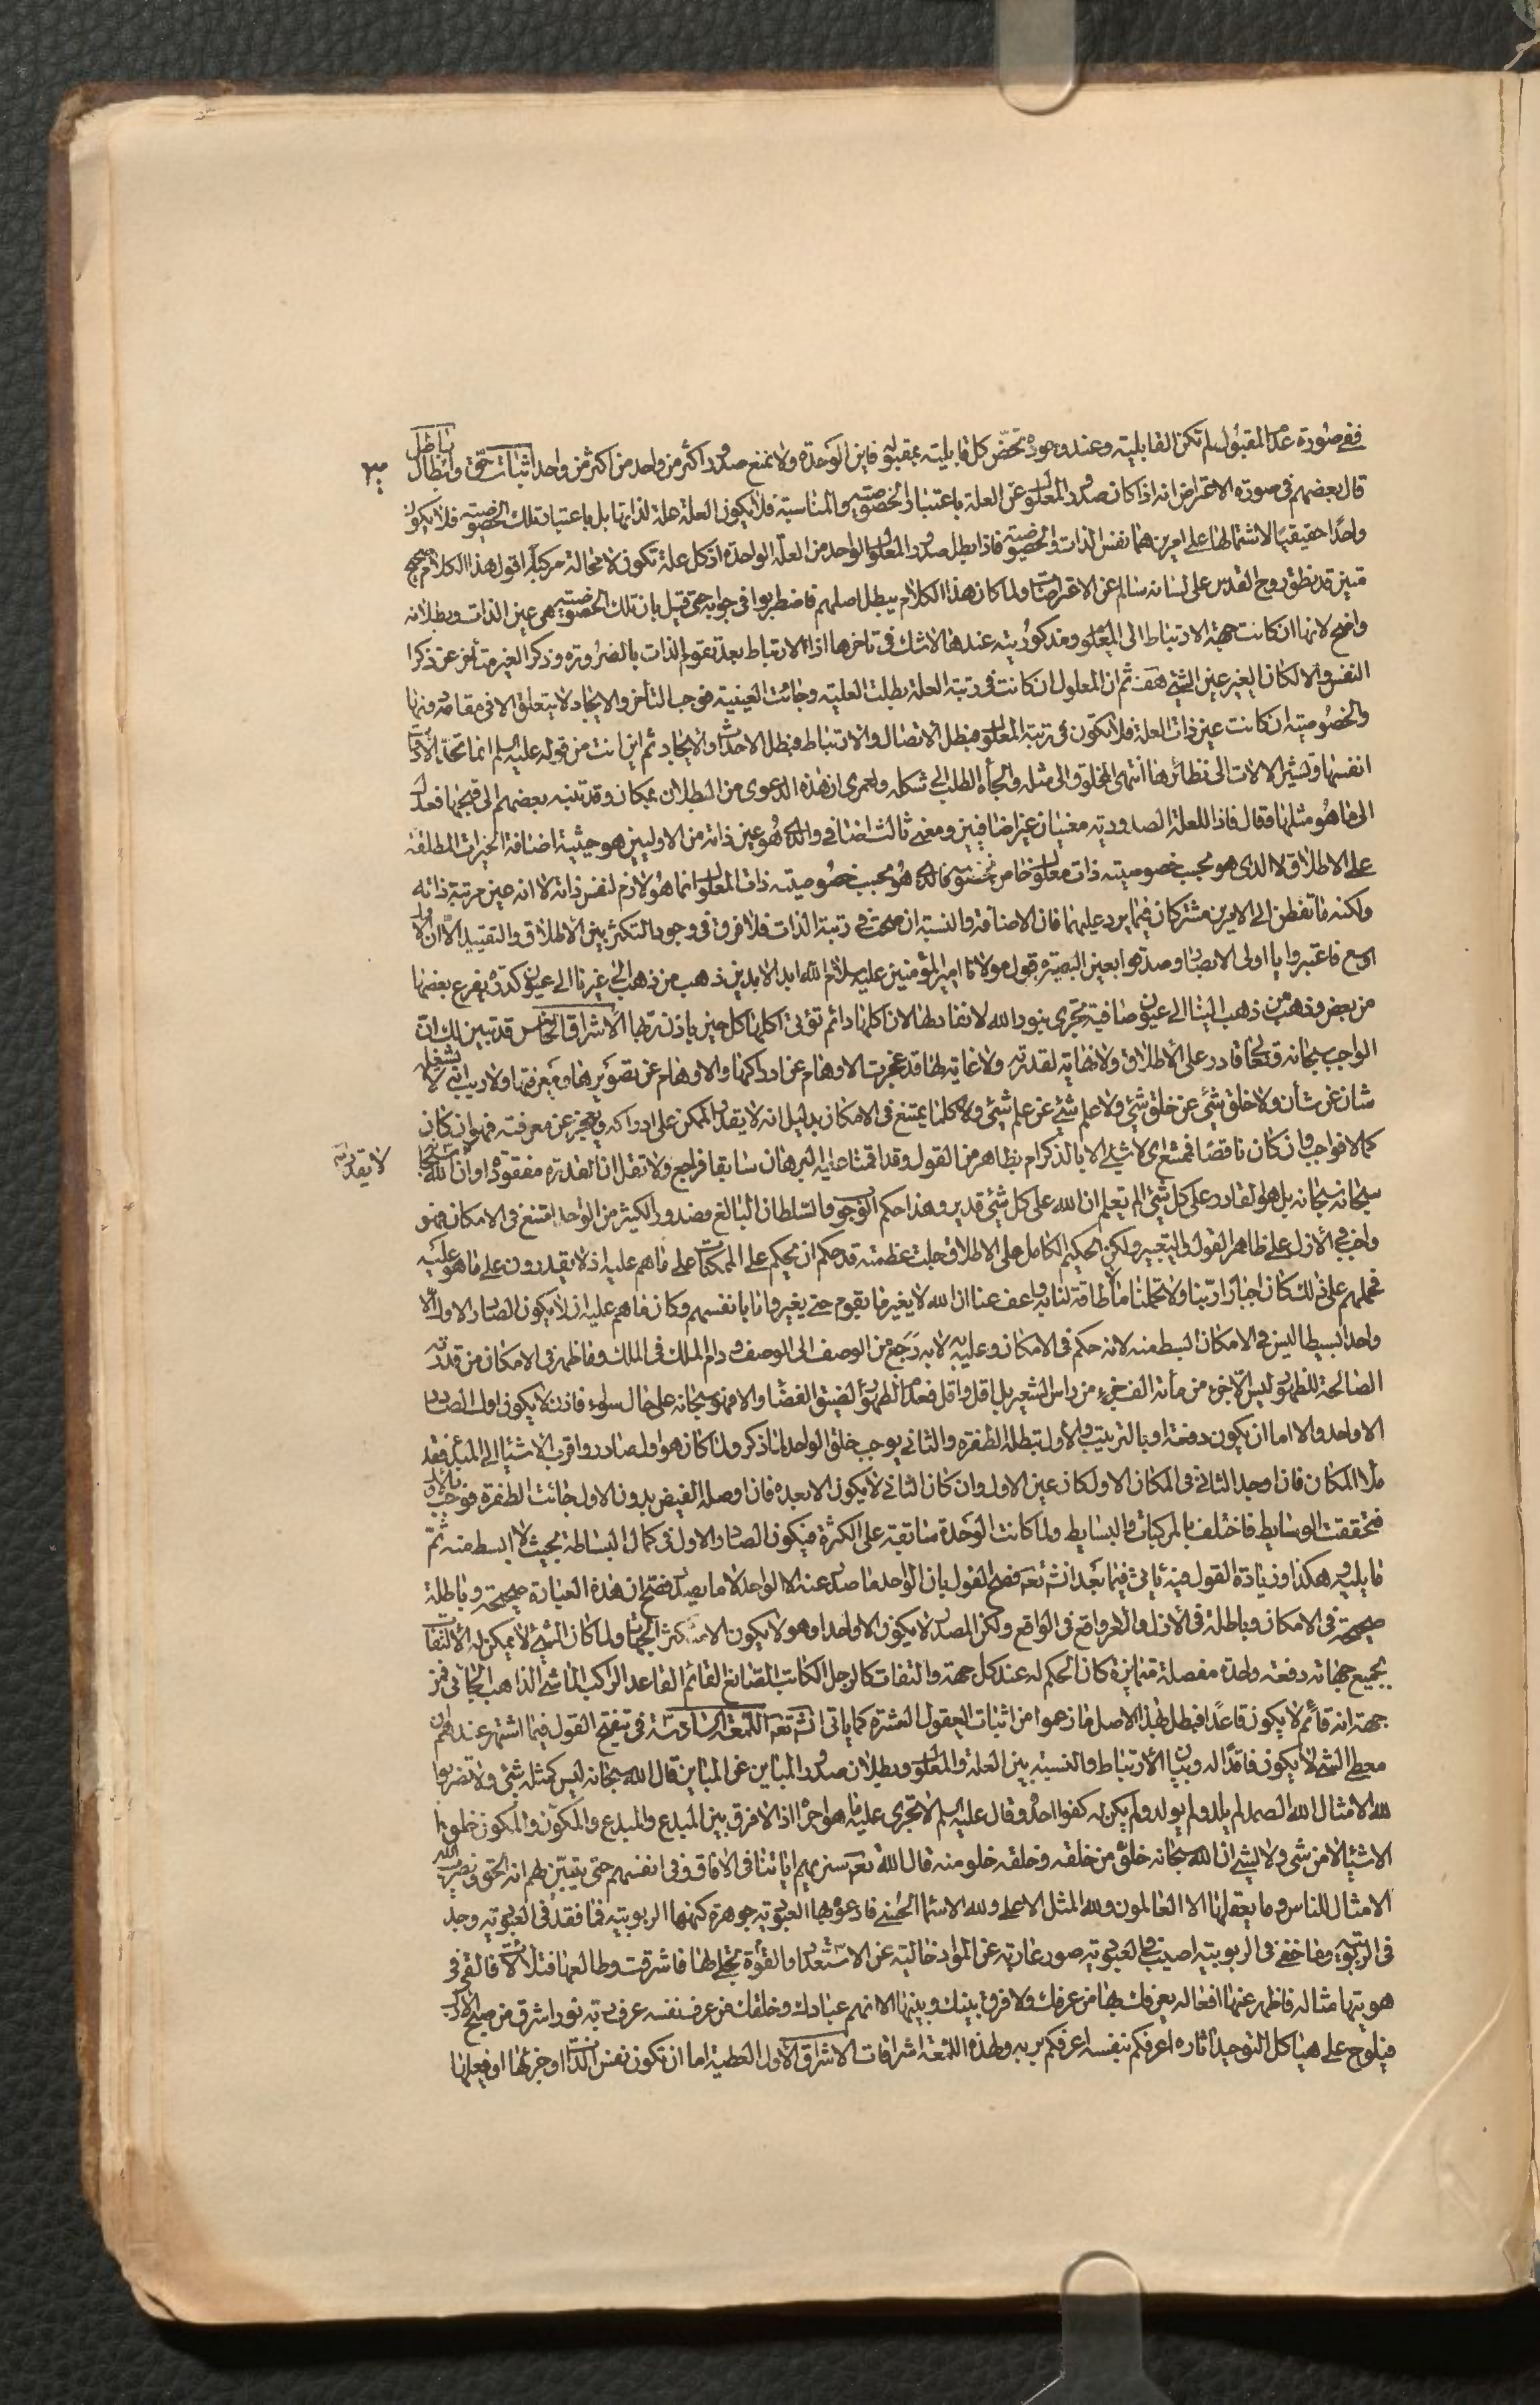 ففي صورة عدم المقبول لم تكن القابلية وعند وجوده تخصّ كل قابلية بمقبوله فاين الوحدة ولا نمنع صدور اكثر من واحد من اكثر من واحد اثبات حق وابطال باطل
٣
قال بعضهم في صورة الاعتراض انه اذا كان صدور المعلول عن العلة باعتبار الخصوصية والمناسبة فلا يكون العلة علة لذاتها بل باعتبار تلك الخصوصية فلا يكون
واحدا حقيقيا لاشتمالها على امرين هما نفس الذات والخصوصية فاذا بطل صدور المعلول الواحد من العلة الواحدة اذ كل علة تكون لا محالة مركبة اقول هذا الكلام صحيح
متين قد نطق روح القدس على لسانه سالم عن الاعتراضات ولما كان هذا الكلام يبطل اصلهم فاضطربوا في جوابه حتى قيل بان تلك الخصوصية هي عين الذات وبطلانه
واضح لانها ان كانت جهة الارتباط الى المعلول ومذكوريته عندها لا شك في تاخرها اذ الارتباط بعد تقوم الذات بالضرورة وذكر الغير متأخر عن ذكر
النفس والا لكان الغير عين الشيء هف ثم ان المعلول ان كانت في رتبة العلة بطلت العلية وجائت العينية فوجب التأخر والايجاد لا يتعلق الا في مقامه منها
والخصوصية ان كانت عين ذات العلة فلا تكون في رتبة المعلول فبطل الاتصال والارتباط فبطل الاحداث والايجاد ثم اين انت من قوله عليه السلم انما تحد الادوات
انفسها وتشير الالات الى نظائرها انتهى المخلوق الى مثله والجأه الطلب الى شكله ولعمري ان هذه الدعوى من البطلان بمكان وقد تنبه بعضهم الى قبحها فعدل
الى ما هو مثلها فقال فاذا للعلة الصدورية معنيان غير اضافيين ومعنى ثالث اضافي والذي هو عين ذاته من الاوليين هو حيثية اضافة الخيرات المطلقة
على الاطلاق لا الذي هو بحسب خصوصية ذات معلول خاص بخصوصه فالذي هو بحسب خصوصية ذات المعلول انما هو لازم لنفس ذاته لا انه عين مرتبة ذاته
ولكنه ما تفطن الى الامرين مشتركان فيما يرد عليهما فان الاضافة والنسبة ان صحت في رتبة الذات فلا فرق في وجود التكثر بين الاطلاق والتقييد الا ان الاول
اوسع فاعتبروا يا اولي الابصار وصدقوا بعين البصيرة قول مولانا امير المؤمنين عليه سلام الله ابد الابدين ذهب من ذهب الى غيرنا الى عيون كدرة يفرغ بعضها
من بعض وذهب من ذهب الينا الى عيون صافية تجري بنور الله لا نفاد لها لان اكلها دائم تؤتي اكلها كل حين باذن ربها الاشراق الخامس قد تبين لك ان
الواجب سبحانه وتعالى قادر على الاطلاق ولا نهاية لقدرته ولا غاية لها قد عجزت الاوهام عن ادراكها والاوهام عن تصويرها ومعرفتها ولا ريب انه لا يشغله
شان عن شأن ولا خلق شيء عن خلق شيء ولا علم شيء عن علم شيء ولا كلما يمتنع في الامكان بدليل انه لا يقدر الممكن على ادراكه ويعجز عن معرفته فهو ان كان
كمالا فواجب وان كان ناقصا فممتنع اي لا شيء الا بالذكر ام بظاهر من القول وقد اقمنا عليه البرهان سابقا فراجع ولا تقل ان القدرة مفقودة او ان الله سبحانه
لا يقدر به
سبحانه سبحانه بل هو القادر على كل شيء الم تعلم ان الله على كل شيء قدير وهذا حكم الوجوب والسلطان البالغ وصدور الكثير من الواحد امتنع في الامكان فهو
واجب في الازل على ظاهر القول والتعبير ولكن الحكيم الكامل على الاطلاق جلت عظمته قد حكم ان يحكم على الممكنات على ما هم عليه اذ لا يقدرون على ما هو عليه
فحملهم على ذلك كان اجبارا ربنا ولا تحملنا ما لا طاقة لنا به واعف عنا ان الله لا يغير ما بقوم حتى يغيروا ما بانفسهم وكان ما هم عليه ان لا يكون الصادر الاول الا
واحدا بسيطا ليس في الامكان ابسط منه لانه حكم في الامكان وعليه لا به رجع من الوصف الى الوصف ودام الملك في الملك وما ظهر في الامكان من قدرته
الصالحة للظهور ليس الا جزء من مأئة الف جزء من راس الشعير بل اقل واقل فعدم الظهور لضيق الفضاء والا فهو سبحانه على حال سواء فاذن لا يكون اول الصادر
الا واحد والا اما ان يكون دفعة او بالترتيب والاول تبطله الطفرة والثاني يوجب خلق الواحد لما ذكر ولما كان هو اول صادر واقرب الاشياء الى المبدء فقد
ملأ المكان فان اوجد الثاني في المكان الاول كان عين الاول وان كان الثاني لا يكون الا بعده فان اوصله الفيض بدون الاول جائت الطفرة فوجب بالاول
فتحققت الوسايط فاختلف بالمركبات والبسايط ولما كانت الوحدة سابقة على الكثرة فيكون الصادر الاول في كمال البساطة بحيث لا ابسط منه ثم
ما يليه وهكذا وزيادة القول فيه يأتي فيما بعد انشاء الله تعه فصح القول بان الواحد ما صدر عنه الا الواحد لا ما يصدر فصح ان هذه العبارة صحيحة وباطلة
صحيحة في الامكان وباطلة في الازل والامر واقع في الواقع ولكن المصدر لا يكون الا واحدا وهو لا يكون الا متكثر الجهات ولما كان الشيء لا يمكن له الالتفات
بجميع جهاته دفعة واحدة مفصلة متمايزة كان الحكم له عند كل جهة والتفات كالرجل الكاتب الصانع القائم القاعد الراكب الماشي الذاهب الجائي فمن
جهة انه قائم لا يكون قاعدا فبطل بهذا الاصل ما زعموا من اثبات العقول العشرة كما ياتي انشاء الله تعه اللمعة السادسة في تنقيح القول فيما اشتهر عندهم ان
معطي الشيء لا يكون فاقدا له وبيان الارتباط والنسبة بين العلة والمعلول وبطلان صدور المباين عن المباين قال الله سبحانه ليس كمثله شيء ولا تضربوا
لله الامثال الله الصمد لم يلد ولم يولد ولم يكن له كفوا احد وقال عليه السلم لا تجري عليه ما هو اجراه اذ لا فرق بين المبدع والمبدع والمكوّن والمكون خلق
الاشياء لا من شيء ولا لشيء ان الله سبحانه خلو من خلقه وخلقه خلو منه قال الله تعه سنريهم اياتنا في الافاق وفي انفسهم حتى يتبين لهم انه الحق ونضرب الله
الامثال للناس وما يعقلها الا العالمون ولله المثل الاعلى ولله الاسماء الحسنى فادعوه بها العبودية جوهرة كنهها الربوبية فما فقد في العبودية وجد
في الربوبية وما خفي في الربوبية اصيب في العبودية صور عارية عن المواد خالية عن الاستعداد والقوة تجلى لها فاشرقت وطالعها فتلألأت فالقى في
هويتها مثاله فاظهر عنها افعاله يعرفك بها من عرفك ولا فرق بينك وبينها الا انهم عبادك وخلقك من عرف نفسه عرف ربه نور اشرق من صبح الازل
فيلوح على هياكل التوحيد اثاره اعرفكم بنفسه اعرفكم بربه ولهذه اللمعة اشراقات الاشراق الاول العطية اما ان تكون نفس الذات او جزئها او فعلها